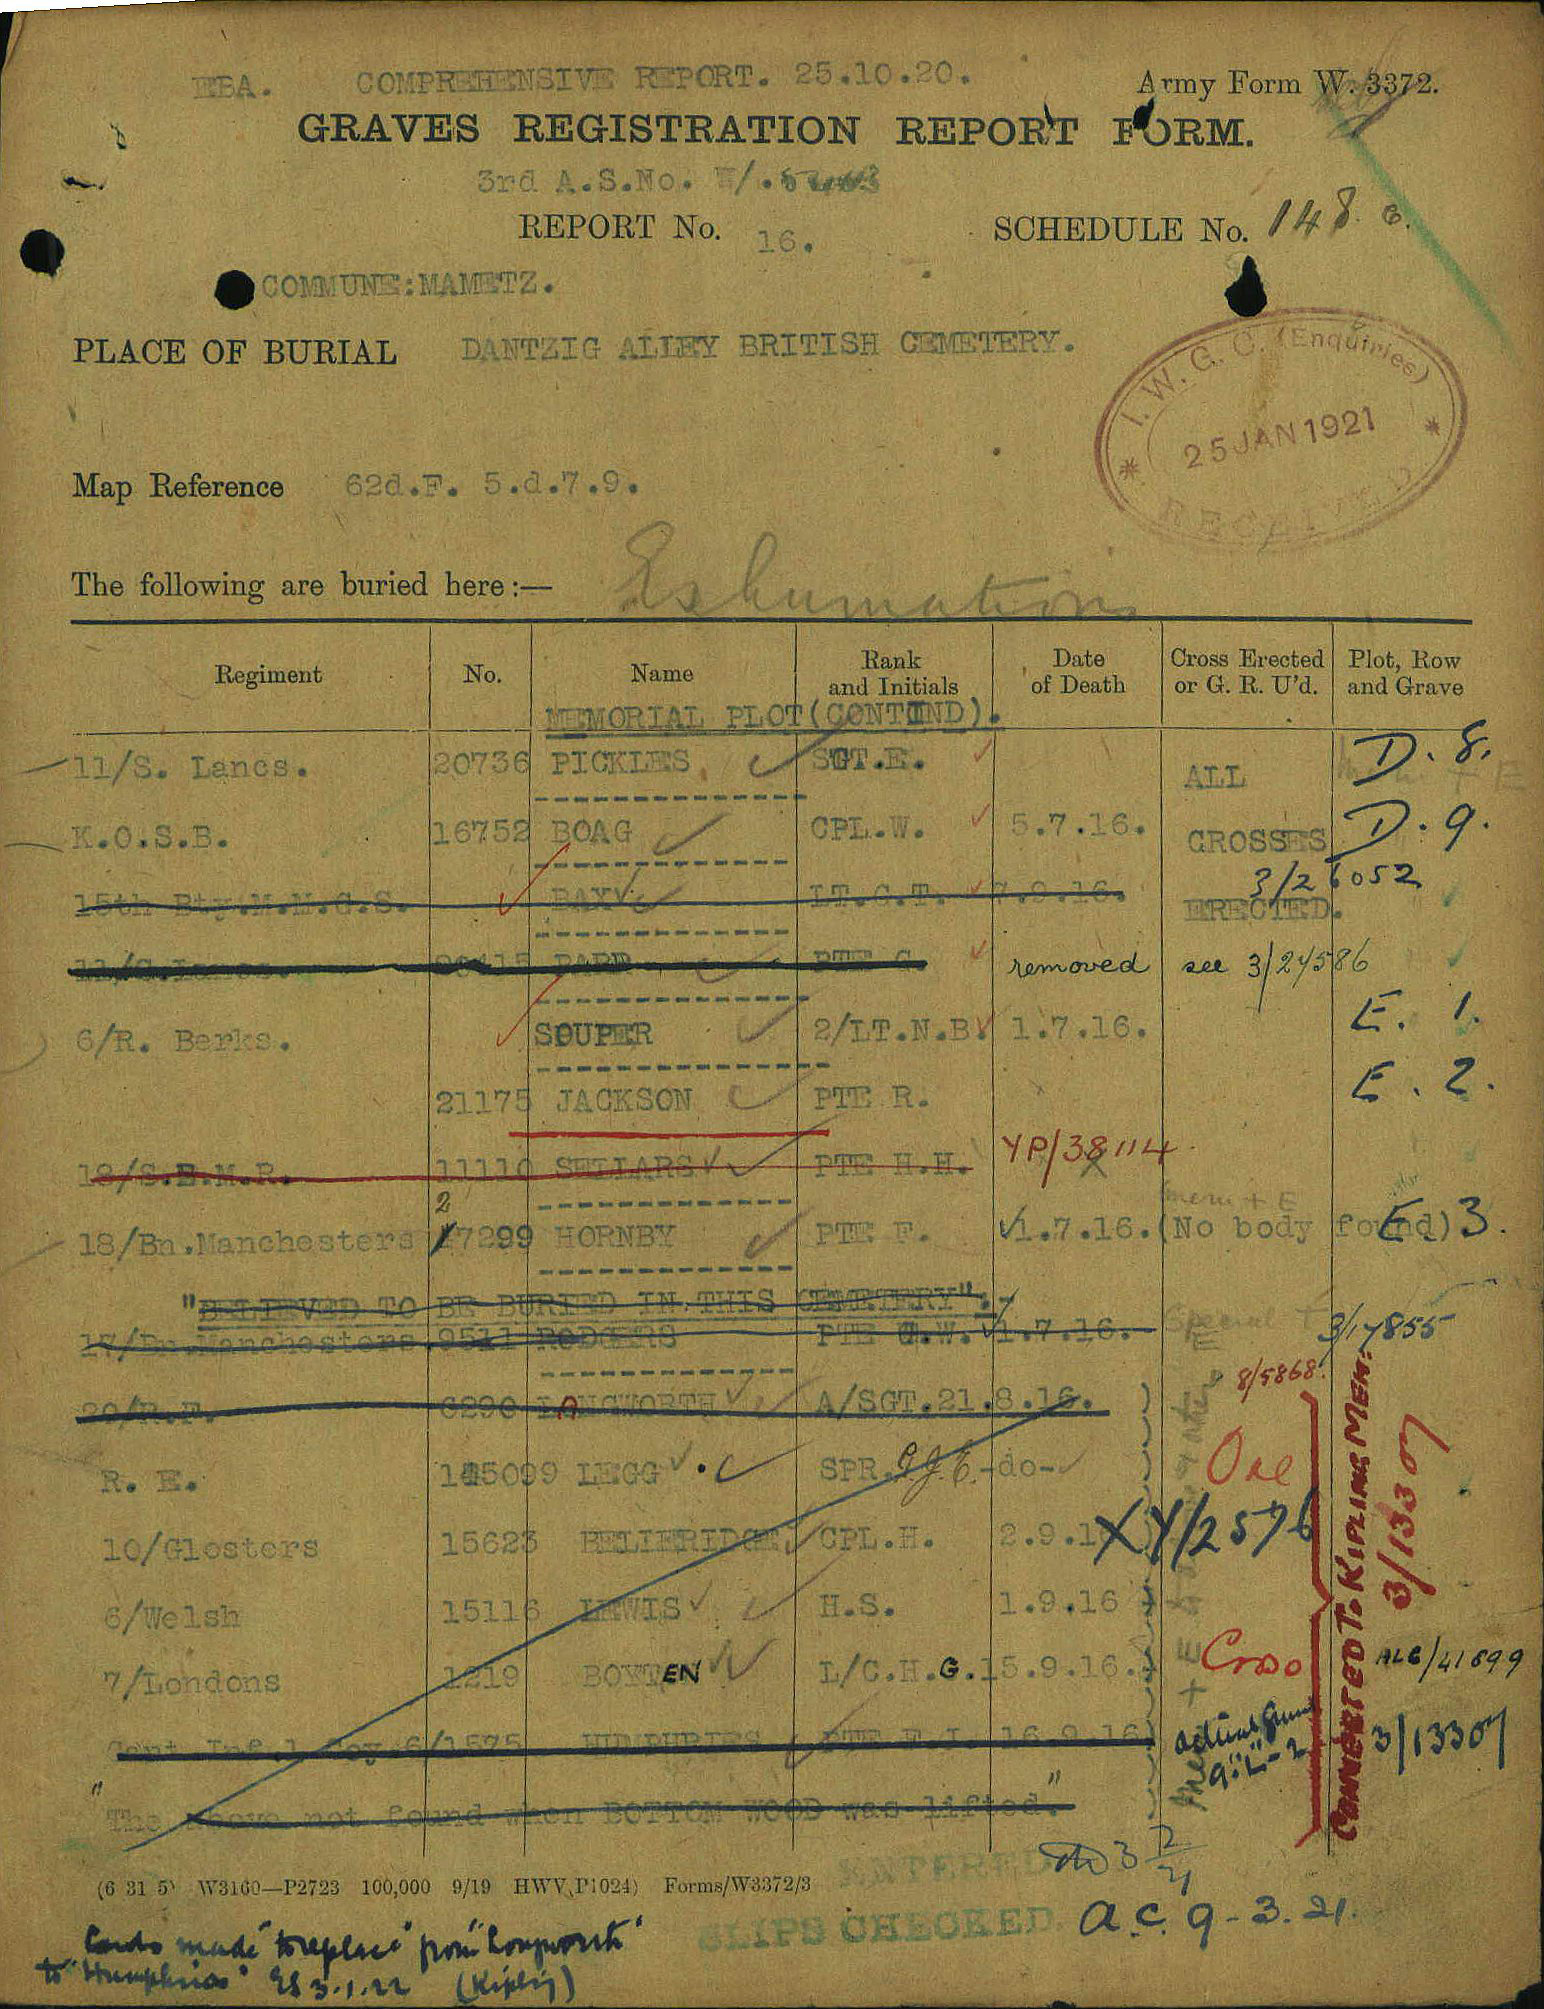 EBA. COMPREHENSIVE REPORT. 25.10.20. Army Form W. 3372.
GRAVES REGISTRATION REPORT FORM.
3rd A.S.No.
REPORT No. 16. SCHEDULE No. 148.
COMMUNE:MAMETZ.
PLACE OF BURIAL DANTZIG ALLEY BRITISH CEMETERY.
I.W.G.C. (Enquiries)
25 JAN 1921
RECEIVED
Map Reference 62d.F. 5.d.7.9.
The following are buried here:— Exhumations
Regiment No. Name Rank and Initials Date of Death Cross Erected or G. R. U'd. Plot, Row and Grave
MEMORIAL PLOT(CONTIND).
11/S. Lancs. 20736 PICKLES. SGT.E. ALL D. 8.
K.O.S.B. 16752 BOAG CPL.W. 5.7.16. CROSSES D. 9.
3/26052
15th Bty.M.M.G.S. BAX LT.C.T. 7.9.16. ERECTED.
PTE removed see 3/24586
6/R. Berks. SOUPER 2/LT.N.B. 1.7.16. E. 1.
21175 JACKSON PTE R. E. 2.
18/S.E.M.R. 11110 SELLARS PTE H.H. YP/38114
mem + E
18/Bn.Manchesters 27299 HORNBY PTE F. 1.7.16. (No body found) E 3.
"BELIEVED TO BE BURIED IN THIS CEMETERY":-
17/Bn.Manchesters. 9511 RODGERS PTE W. 1.7.16. Special 3/17855
8/5868.
20/R.F. 6290 LONGWORTH A/SGT. 21.8.16.
R. E. 145099 LEGG SPR. -do- One
10/Glosters 15623 BELIERIDGE CPL.H. 2.9.1 XY/2576
6/Welsh 15116 LEWIS H.S. 1.9.16
7/Londons 1219 BOYTEN L/C.H.G. 15.9.16. Cross ALG/41899
Cont.Inf.1 Coy 6/1575 HUMPHRIES PTE F.J. 16.9.16 actual grave 9."L"-2 3/13307
CONNECTED TO KIPLING MEM:
3/13307
"The above not found when BOTTOM WOOD was lifted."
(6 31 5) W3160—P2723 100,000 9/19 HWV(P1024) Forms/W3372/3
ENTERED
SLIPS CHECKED a.c. 9-3.21.
Cards made "to replace" from "Longworth"
to "Humphries" 3.1.22 (Kipling)